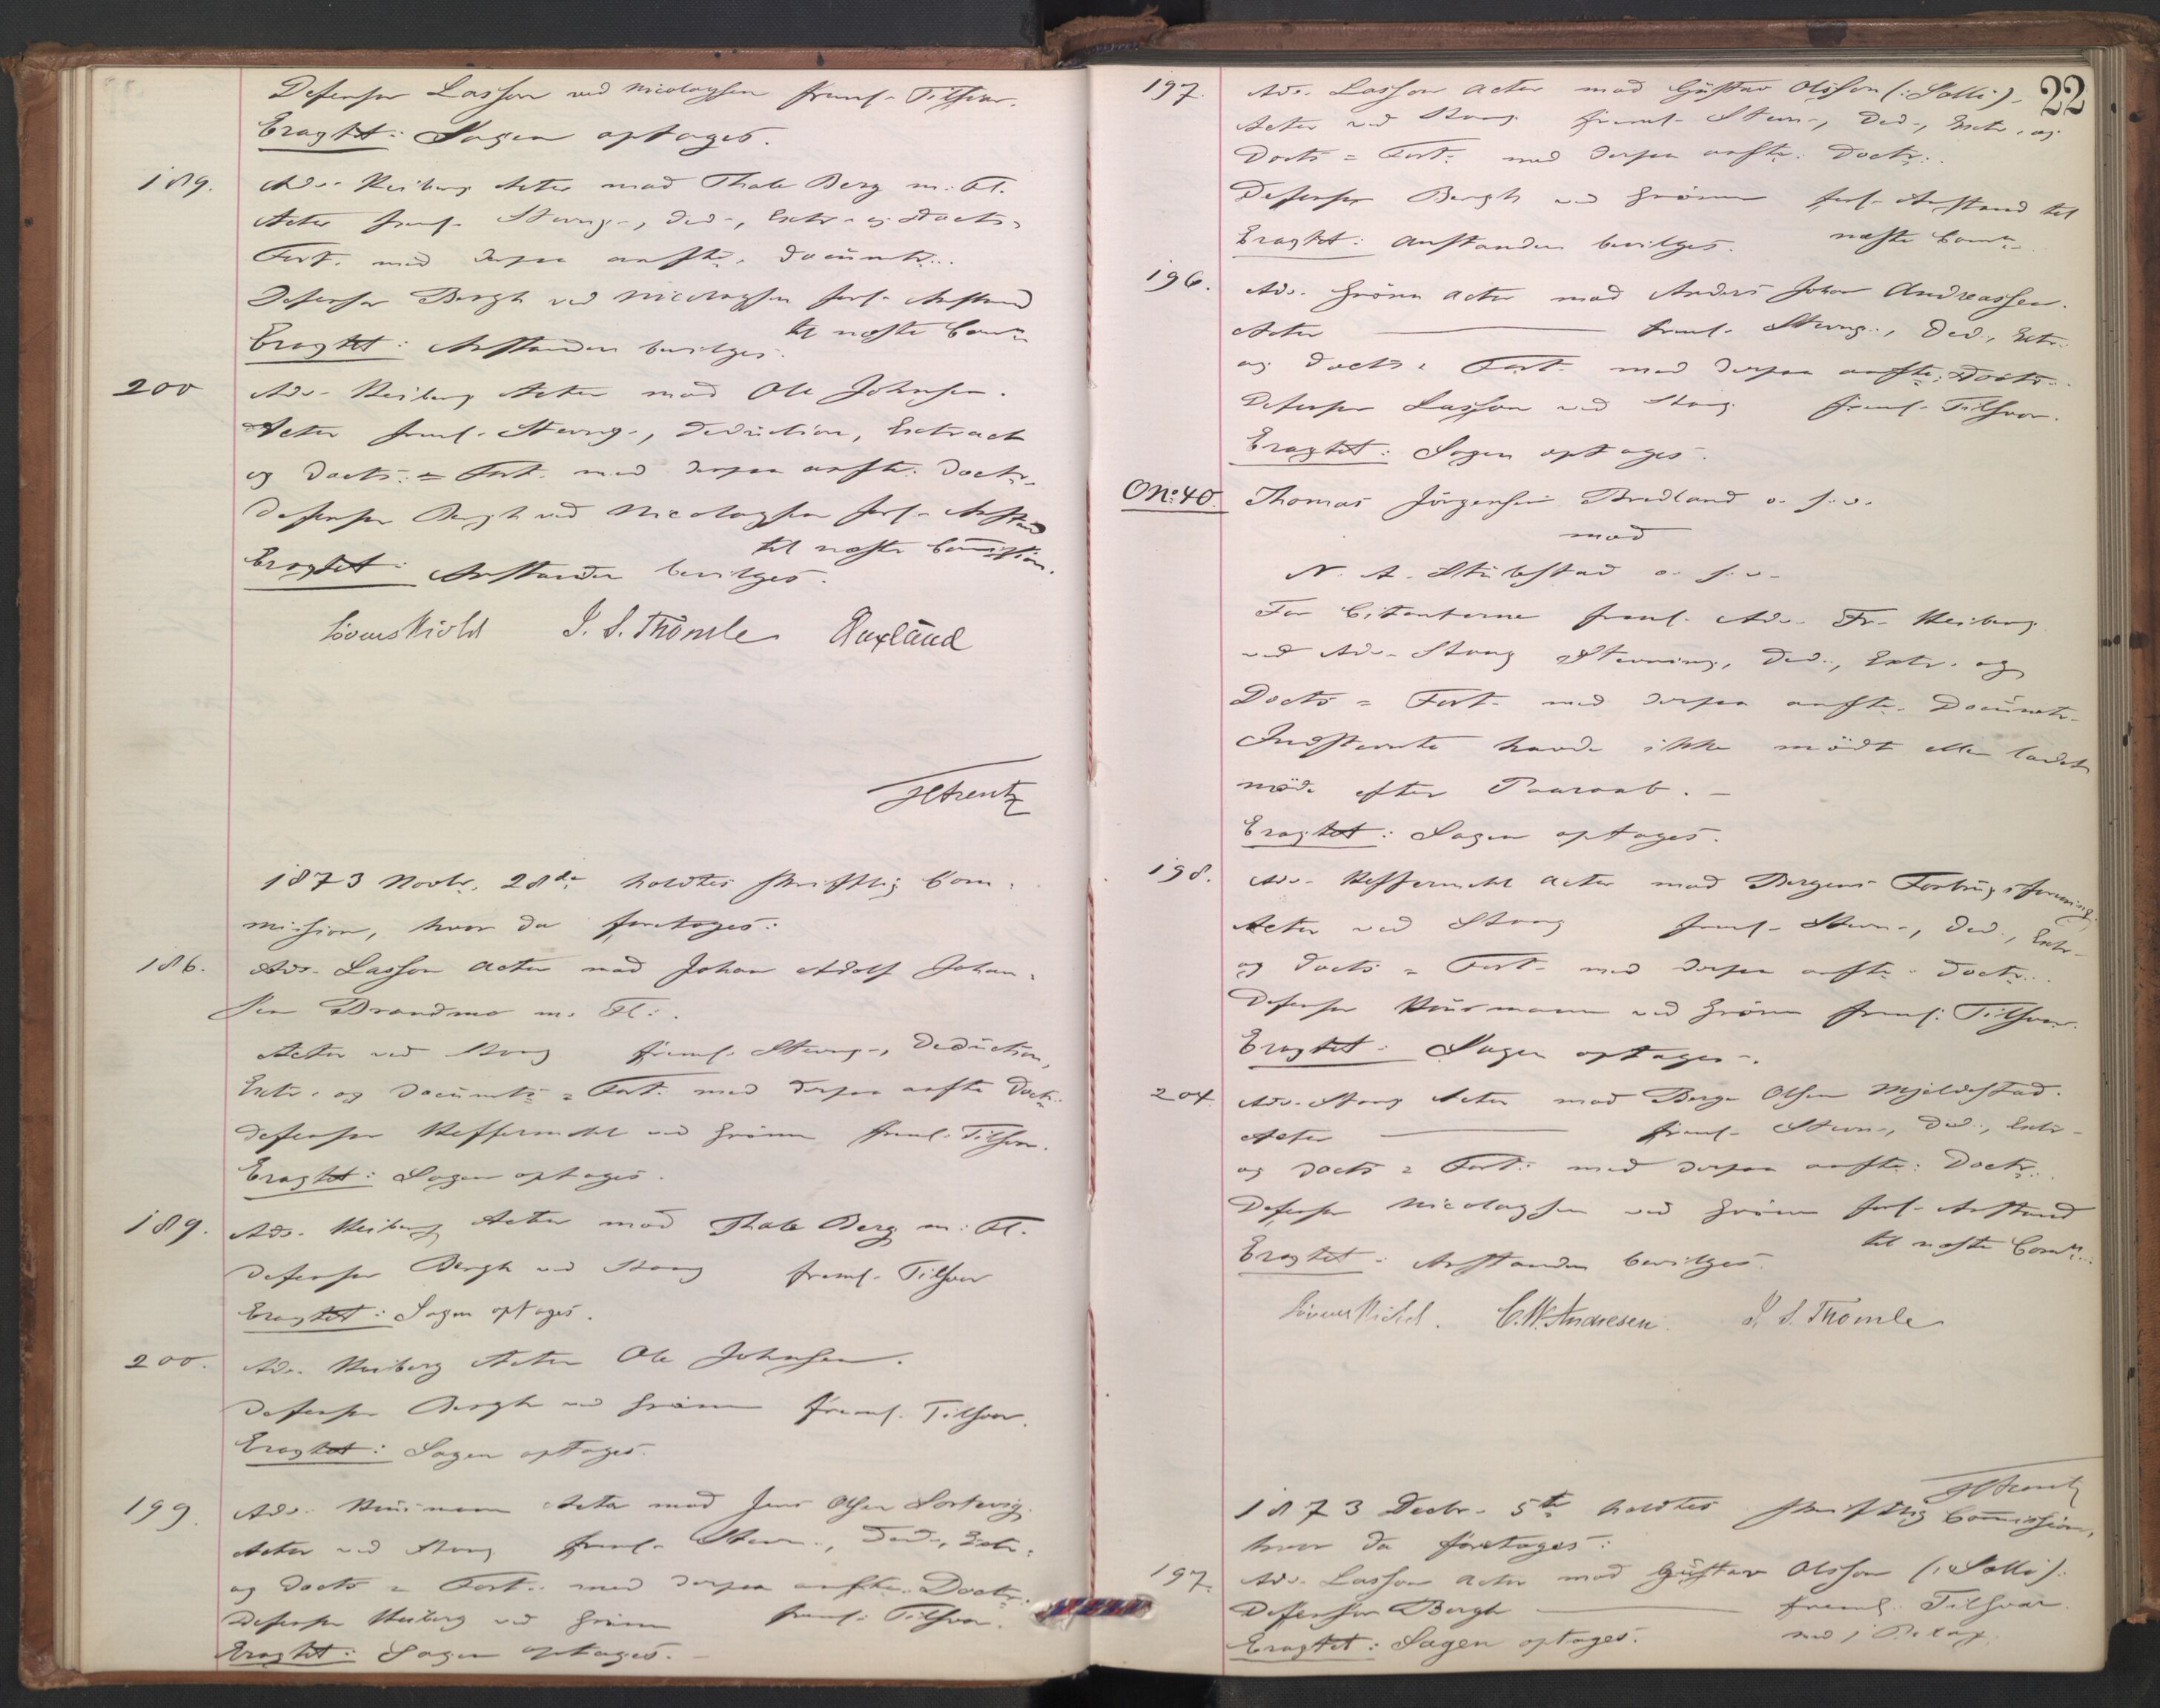 Defensor Lasson ved Nicolaysen freml. Tilsvar.
Eragtet: Sagen optages.
189. Adv. Heiberg Actor mod Thale Berg m. Fl.
Actor freml. Stevng., Ded., Extr. og Docts=
Fort. med derpaa anfte. Documtr.
Defensor Bergh ved Nicolaysen forl. Anstand
til næste Comn.
Eragtet: Anstanden bevilges.
200 Adv. Heiberg Actor mod Ole Johnsen.
Actor freml. Stevng., Deduction, Extract
og Docts.=Fort. med derpaa anfte. Doctr.
Defensor Bergh ved Nicolaysen forl. Anstand
til næste Commission.
Eragtet: Anstanden bevilges.
Løvenskiold J. S. Thomle Auxland
1873 Novbr. 28de holdtes skriftlig Com=
mission, hvor da foretoges:
186. Adv. Lasson Actor mod Johan Adolf Johan=
sen Brandmo m. Fl.
Actor ved Stang freml. Stevng., Deduction,
Extr. og Documts=Fort. med derpaa anfte Doctr.
Defensor Hefsermehl ved Grönn freml. Tilsvar.
Eragtet: Sagen optages.
189. Adv. Heiberg Actor mod Thale Berg m. Fl.
Defensor Bergh ved Stang freml. Tilsvar
Eragtet: Sagen optages.
200. Adv. Heiberg Actor Ole Johnsen.
Defensor Bergh ved Grönn freml. Tilsvar.
Eragtet: Sagen optages.
199. Adv. Huusmann Actor mod Jens Olsen Sortevig.
Actor ved Stang freml. Stevn., Ded., Extr.
og Docts=Fort. med derpaa anfte. Doctr.
Defensor Heiberg ved Grönn freml. Tilsvar.
Eragtet: Sagen optages.
22
197. Adv. Lasson Actor mod Gustav Olsson (: Solli).
Actor ved Stang freml. Stevn., Ded., Extr. og
Docts=Fort. med derpaa anfte. Doctr.
Defensor Bergh ved Grönn forl. Anstand til
næste Comn.
Eragtet: Anstanden bevilges.
196. Adv. Grönn Actor mod Anders Johan Andreassen.
Actor freml. Stevng., Ded., Extr.
og Docts=Fort. med derpaa anfte. Doctr.
Defensor Lasson ved Stang freml. Tilsvar.
Eragtet: Sagen optages.
O No: 40. Thomas Jörgensen Bredland o. s. v.
mod
N. A. Stubstad o. s. v.
For Citanterne freml. Adv. Fr. Heiberg
ved Adv. Stang Stevning, Ded., Extr. og
Docts=Fort. med derpaa anfte. Documtr.
Indstevnte havde ikke mödt eller ladet
möde efter Paaraab.
Eragtet: Sagen optages.
198. Adv. Hefsermehl Actor mod Bergens Forbrugsforening.
Actor ved Stang freml. Stevn., Ded., Extr.
og Docts=Fort. med derpaa anfte. Doctr.
Defensor Huusmann ved Grönn freml. Tilsvar.
Eragtet: Sagen optages.
204. Adv. Stang Actor mod Berge Olsen Mjeldestad.
Actor freml. Stevn., Ded., Extr.
og Docts=Fort. med derpaa anfte. Doctr.
Defensor Nicolaysen ved Grönn forl. Anstand
til næste Comn.
Eragtet: Anstanden bevilges.
Løvenskiold. C. W. Andresen. J. S. Thomle
1873 Decbr. 5te holdtes skriftlig Commission,
hvor da foretoges:
197. Adv. Lasson Actor mod Gustav Olsson (: Solli).
Defensor Bergh freml. Tilsvar
Eragtet: Sagen optages.